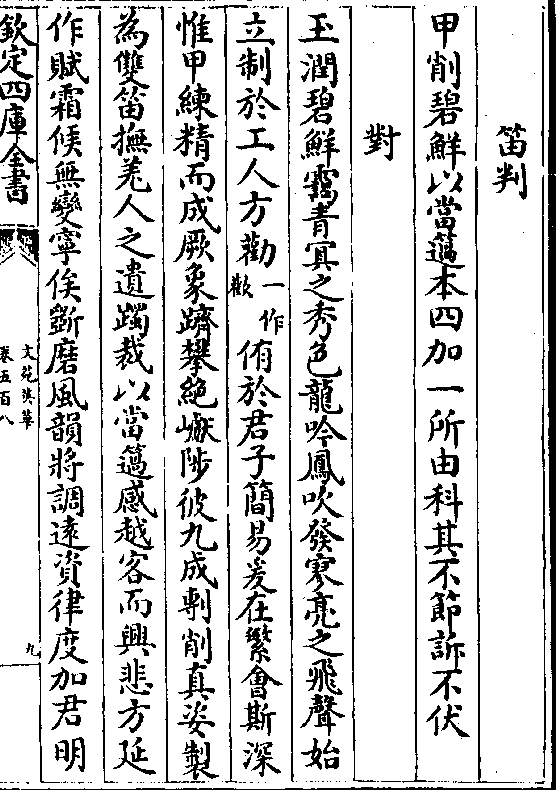 笛判
甲削碧鮮以當簻本四加一所由科其不節訴不伏
對
玉潤碧鮮靄青冥之秀色龍吟鳳吹發寥亮之飛聲始
立制於工人方勸一作歡侑於君子簡易爰在繁會斯深
惟甲練精而成厥象躋攀絶巘陟彼九成剸削真姿製
為雙笛撫羌人之遺躅裁以當簻感越客而興悲方延
作賦霜候無變寧俟斵磨風韻將調遠資律度加君明
欽定四庫全書
文苑英華
卷五百八
九